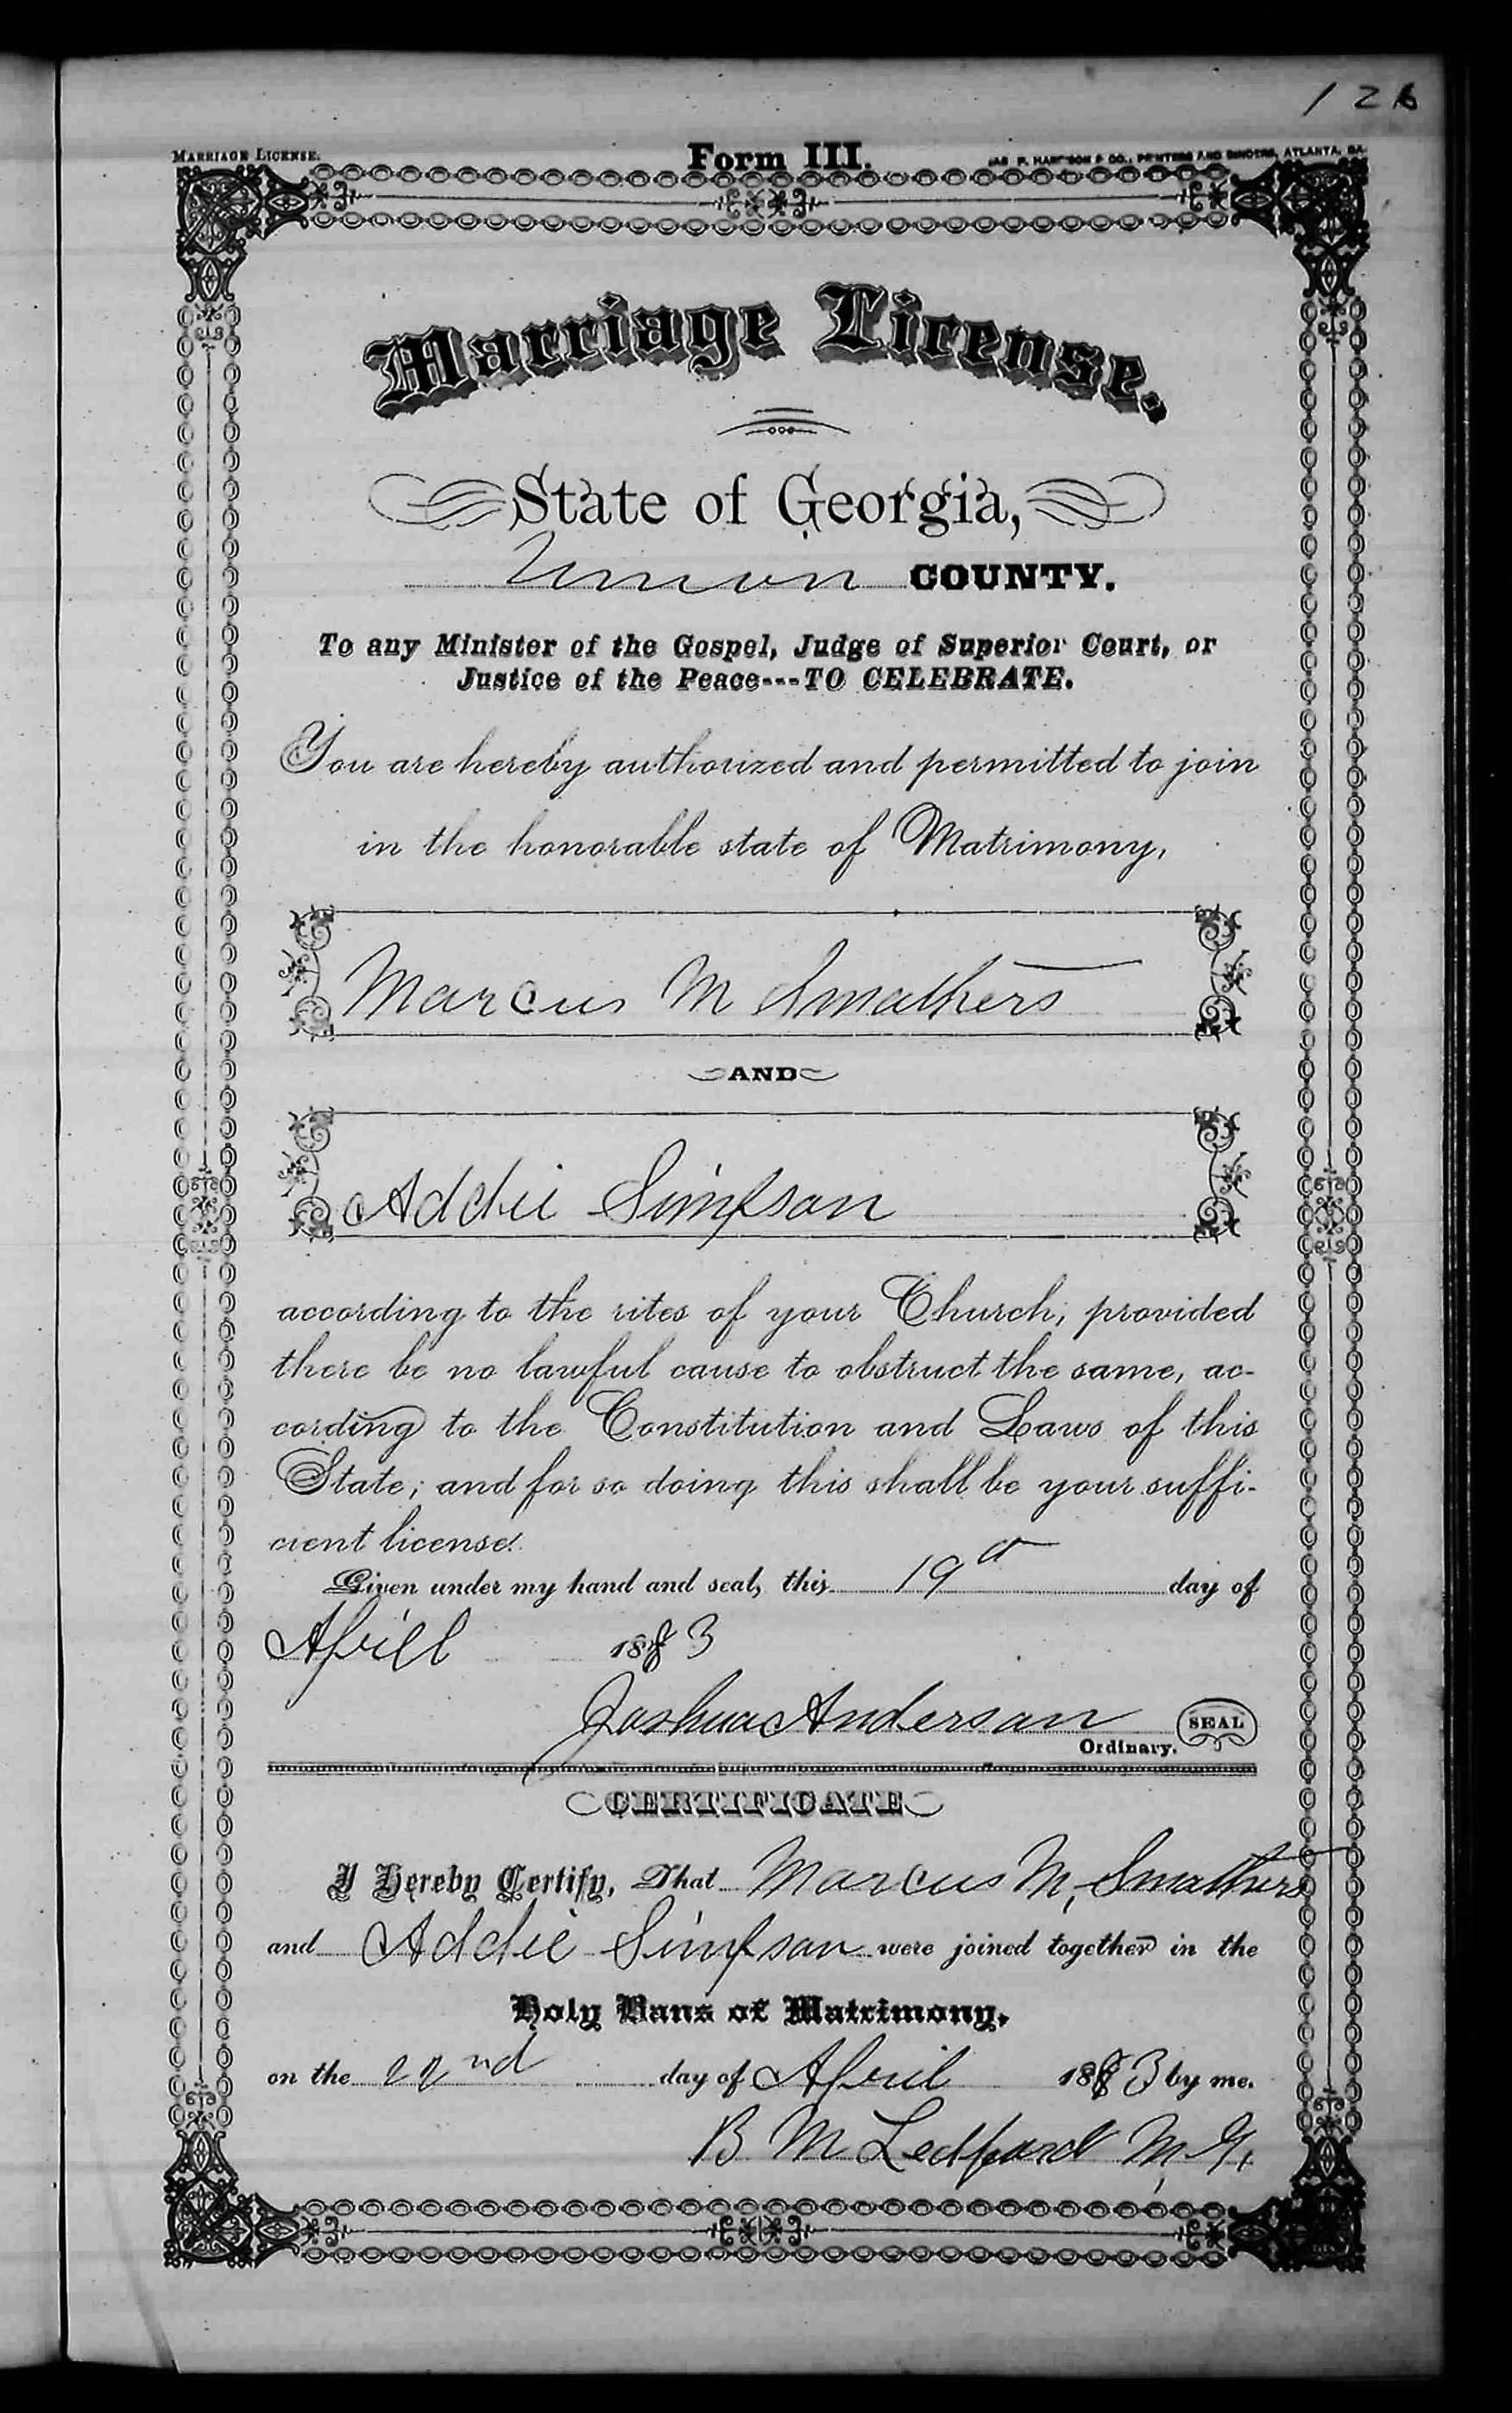 126
MARRIAGE LICENSE.
Form III.
JAS P. HARRISON & CO., PRINTERS AND BINDERS, ATLANTA, GA.
Marriage License.
State of Georgia,
Union COUNTY.
To any Minister of the Gospel, Judge of Superior Court, or
Justice of the Peace---TO CELEBRATE.
You are hereby authorized and permitted to join
in the honorable state of Matrimony,
Marcus M Smathers
AND
Addie Simpson
according to the rites of your Church; provided
there be no lawful cause to obstruct the same, ac-
cording to the Constitution and Laws of this
State; and for so doing this shall be your suffi-
cient license.
Given under my hand and seal, this 19 day of
Aprill 1883
Joshua Anderson SEAL
Ordinary.
CERTIFICATE
I Hereby Certify, That Marcus M, Smathers
and Addie Simpson were joined together in the
Holy Bans of Matrimony,
on the 22nd day of April 1883 by me.
B M Ledford M,G,